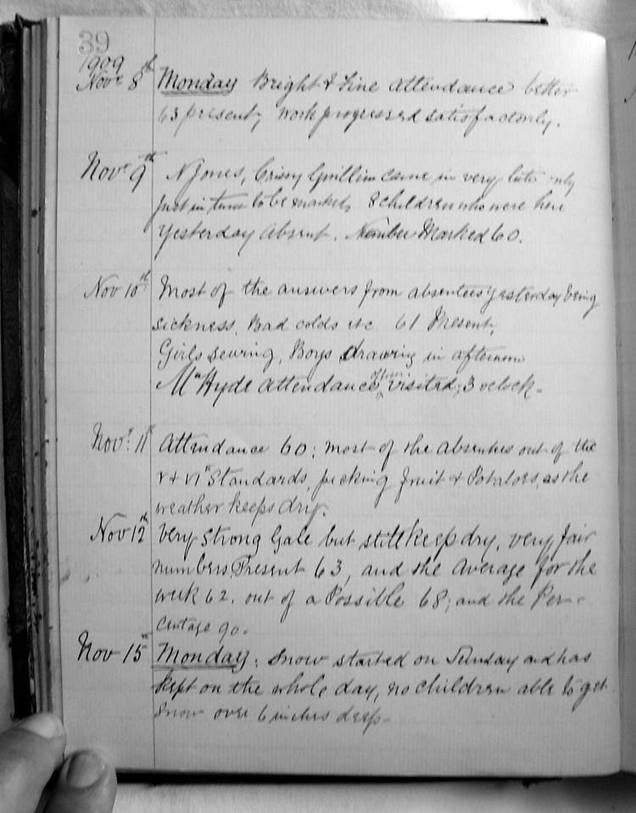 39
1909
Nov. 8th Monday Bright & Fine Attendance better
63 present, work progressed satisfactorily.
Nov. 9th N Jones, Crissy Gwillim came in very late only
just in time to be marked, 8 children who were here
yesterday absent. Number Marked 60.
Nov 10th Most of the answers from absentees yesterday being
sickness, Bad colds etc 61 Present,
Girls sewing, Boys drawing in afternoon
Mr Hyde Attendance Officer visited, 3 oclock-
Nov. 11th Attendance 60; most of the absentees out of the
V & VIth Standards, picking fruit & Potatoes, as the
weather keeps dry.
Nov 12th Very strong Gale but still keep dry, very fair
numbers, Present 63, and the average for the
week 62, out of a Possible 68, and the Per-
centage 90.
Nov 15th Monday; Snow started on Sunday and has
kept on the whole day, no children able to get
Snow over 6 inches deep-